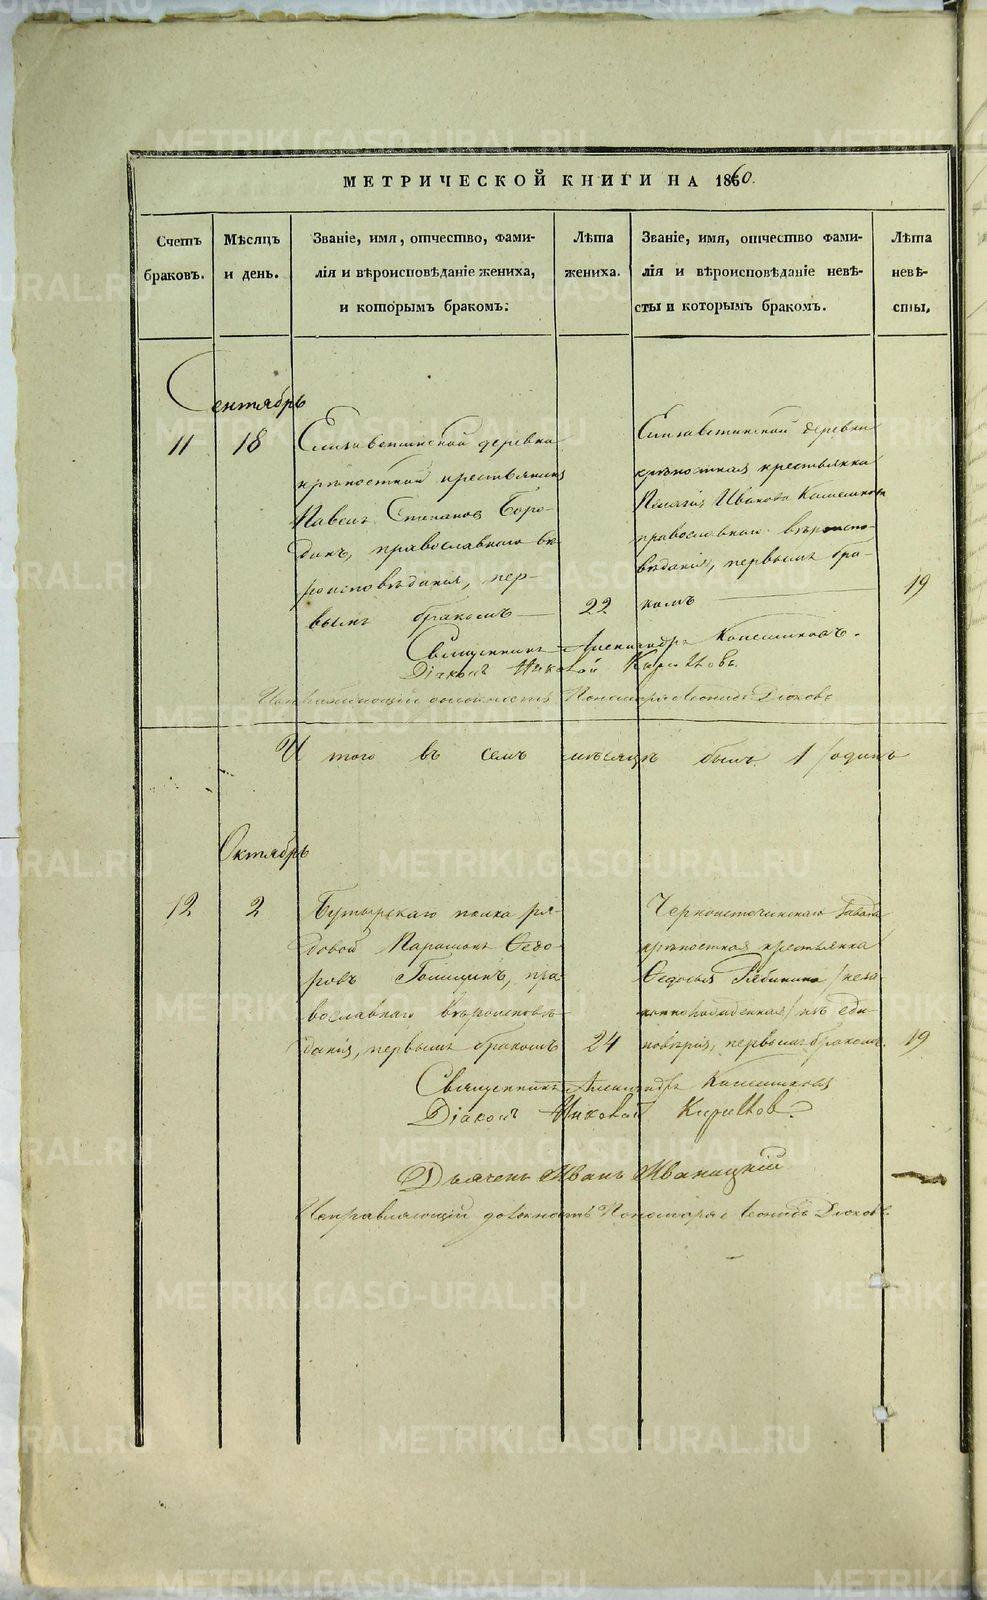 МЕТРИЧЕСКОЙ КНИГИ НА 1860.
Счетъ браковъ.
Мѣсяцъ и день.
Званіе, имя, отчество, фами-
лія и вѣроисповѣданіе жениха,
и которымъ бракомъ:
Лѣта жениха.
Званіе, имя, отчество фами-
лія и вѣроисповѣданіе невѣ-
сты и которымъ бракомъ.
Лѣта невѣ-
сты,
Сентябрь
11
18
Елизаветинской деревни
крѣпостной крестьянинъ
Павелъ Степановъ Боро-
динъ, православнаго вѣ-
роисповѣданія, пер-
вымъ бракомъ
22
Елизаветинской деревни
крѣпостная крестьянка
Пелагія Иванова
православнаго вѣроиспо-
вѣданія, первымъ бра-
комъ
19
Священникъ Александръ
Діаконъ
Исправляющій должность Пономаря Леонидъ
Итого въ семъ мѣсяцѣ былъ 1 /одинъ
Октябрь
12
2
Бутырскаго полка ря-
довой Парамонъ Ѳедо-
ровъ пра-
вославнаго вѣроисповѣ-
данія, первымъ бракомъ
24
Черноисточинскаго завода
крѣпостная крестьянка
Ѳедосья Рябинина /неза-
коннорожденная/ изъ еди-
новѣрія, первымъ бракомъ.
19
Священникъ Александръ
Діаконъ
Дьячекъ Иванъ Иваницкій
Исправляющій должность Пономаря Леонидъ
METRIKI.GASO-URAL.RU